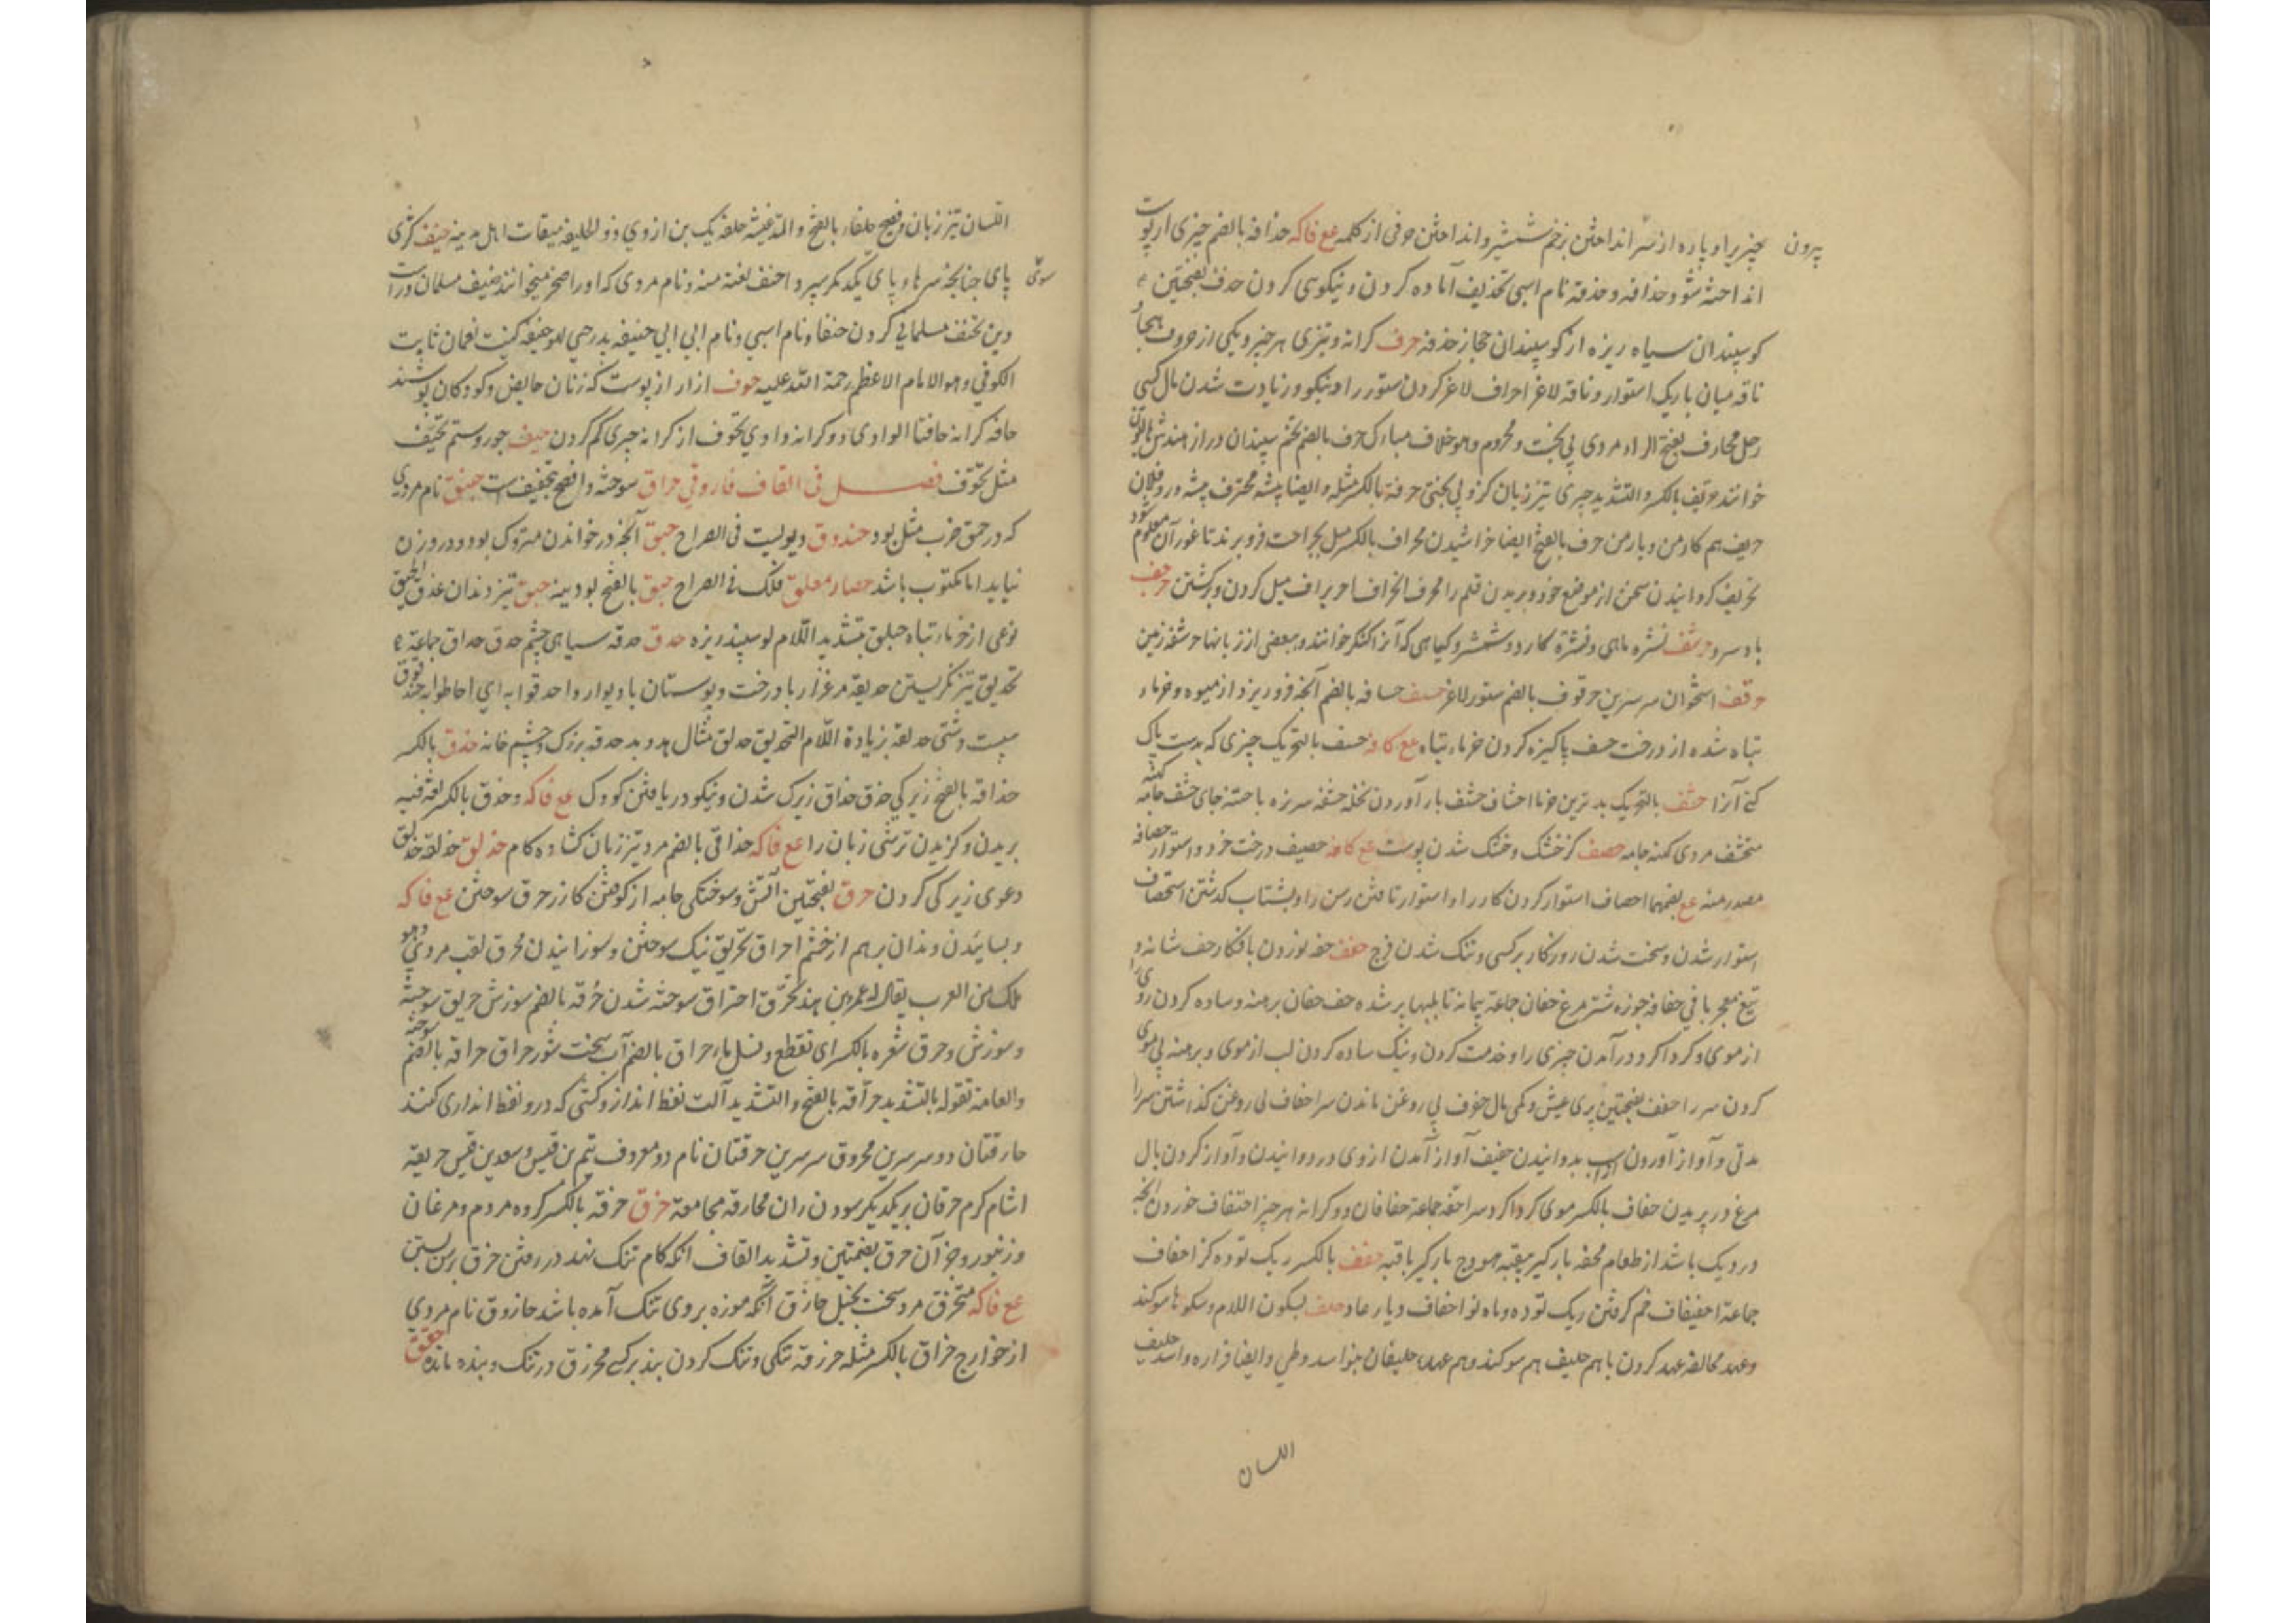 بیرون
چیزیرا و پاره از سر انداختن بزخم شمشیر و انداختن حرفی از کلمه مع فاکه حذافه بالضم چیزی از پوست
انداخته شود و حذافه و حذفه نام اسپی تحذیف آماده کردن و نیکویی کردن حذف بفتحتین
کوسپندان سیاه ریزه از کوسپندان حجاز حذفه حرف کرانه و تیزی هر چیز و یکی از حروف هجا و
ناقه میان باریک استوار و ناقه لاغر احراف لاغر کردن ستور را و نیکو و زیادت شدن مال کسی
رجل محارف بفتح الراء مردی بی بخت و محروم و هو خلاف مبارک حرف بالضم تخم سپندان
خوانند حریف بالکسر و التشدید چیزی تیز زبان کز و بی بختی حرفة بالکسر مثله و ایضا پیشه محترف پیشه ور و فلان
حریف هم کار من و یار من حرف بالفتح ایضا خراشیدن محراف بالکسر میل جراحت فرو برند تا غور آن معلوم شود
تحریف کردانیدن سخن از موضع خود و بریدن قلم را محرف انحراف میل کردن و برکشتن حرجف
باد سرد حرشف نشره ماهی و نشرة کارد و شمشیر و کیاهی که آنرا کنکر خوانند و بعضی از زبانها حرشفه زمین
حرقف استخوان سر سرین حرقوف بالضم ستور لاغر حسف حسافه بالضم آنچه فرو ریزد از میوه و خرماء
تباه شده از درخت حسف پاکیزه کردن خرماء تباه مع کافه حسف بالتحریک چیزی که بدست پاک
کنی آنرا حشف بالتحریک بدترین خرما احشاف حشف بار آوردن نخله حشفه سر نره باختنه جای حشف جامه کهنه
متحشف مردی کهنه جامه حصف کر خشک و خشک شدن پوست مع کافه حصیف درخت خرد و استوار حصافه
مصدر منه مع بضمهما احصاف استوار کردن کار را و استوار تافتن رسن را و بشتاب کذشتن استحصاف
استوار شدن و سخت شدن روزکار بر کسی و تنک شدن فرج حفف حفه نوردن بافکار حف شانه و
تیغ معجر بافی حفانه جوزه شتر مرغ حفان جماعة پیمانه تا بلبها پر شده حف حفان برهنه و ساده کردن روی را
از موی و کرداکرد در آمدن چیزی را و خدمت کردن و نیک ساده کردن لب از موی و برهنه بی موی
کردن سر را حفف بفتحتین بری عیش و کمی مال حفوف بی روغن ماندن سر احفاف بی روغن کذاشتن سر را
مدتی و آواز آوردن اسپ بدوانیدن حفیف آواز آمدن از وی در دوانیدن و آواز کردن بال
مرغ در پریدن حفاف بالکسر موی کرداکرد سر احفه جماعة حفافان دو کرانه هر چیز احتفاف خوردن آنچه
در دیک باشد از طعام محفه بارکیر بی قبه هودج بارکیر با قبه حقف بالکسر ریک توده کژ احقاف
جماعة احقیقاف خم کرفتن ریک توده و ماه نو احقاف دیار عاد حلف بسکون اللام و سکونها سوکند
و عهد محالفه عهد کردن با هم حلیف هم سوکند و هم عهد حلیفان بنو اسد و طی و ایضا فزاره و اسد حلیف
اللسان
اللسان تیز زبان و فصیح حلفاء بالفتح و المد غیشه حلفه یک بن از وی ذو الحلیفه میقات اهل مدینه حنف کژی
سوی
پای چنانکه سرهاء پای یکدیکر میپرد احنف نعته منه و نام مردی که او را صخر میخوانند حنیف مسلمان و راست
دین تحنف مسلمانی کردن حنفا و نام اسپی و نام ابی ابی حنیفه پدر حی ابو حنیفه کنیت نعمان ثابت
الکوفی و هو الامام الاعظم رحمة الله علیه حوف ازار از پوست که زنان حایض و کودکان پوشند
حافه کرانه حافتا الوادی دو کرانه وادی تحوف از کرانه چیزی کم کردن حیف جور و ستم تحیف
مثل تحوف فصل فی القاف فاروقی حراق سوخته و افصح بتخفیف است حبنق نام مردی
که در حمق ضرب مثل بود حندوق دیولیت فی الصراح حبق آنچه در خواندن متروک بود و در وزن
نیاید اما مکتوب باشد حصار معلق فلک فی الصراح حبق بالفتح بودینه حبق تیز دندان عذق الحبیق
نوعی از خرماء تباه حبلق بتشدید اللام کوسپند ریزه حدق حدقه سیاهی چشم حدق حداق جماعة
تحدیق تیز نکریستن حدیقة مرغزار با درخت و بوستان با دیوار و احدقوا به ای احاطوا به حندقوق
سپست دشتی حدلقة بزیادة اللام التحدیق حدلق مثال هدبد حدقه بزرک و چشم خانه حذق بالکسر
حذاقه بالفتح زیرکی حذق حذاق زیرک شدن و نیکو دریافتن کودک مع فاکه و حذق بالکسر لغة فیه
بریدن و کزیدن ترشی زبان را مع فاکه حذاقی بالضم مرد تیز زبان کشاده کام حذلق حذلقة تحذلق
دعوی زیرکی کردن حرق بفتحتین آتش و سوختکی جامه از کوفتن کازر حرق سوختن مع فاکه
و بسائیدن دندان بر هم از خشم احراق تحریق نیک سوختن و سوزانیدن محرق لقب مردی و هو
ملک من العرب یقال له عمرو بن هند تحرق احتراق سوخته شدن حرقه بالضم سوزش حریق سوخته
و سوزش و حرق شعره بالکسر ای تقطع و نسل ماء حراق بالضم آب سخت شور حراق حراقه بالضم سوخته
و العامة تقوله بالتشدید حراقه بالفتح و التشدید آلت نفط انداز و کشتی که درو نفط اندازی کنند
حارقتان دو سر سرین محروق سر سرین حرقتان نام دو معروف تیم بن قیس و سعد بن قیس حریقة
اشام کرم حرقان بیکدیکر سودن ران محارقه مجامعة حزق حزقه بالکسر کروه مردم و مرغان
و زنبور و جز آن حزق بضمتین و تشدید القاف آنکه کام تنک نهد در رفتن حزق برسن بستن
مع فاکه متحزق مرد سخت بخیل حازق آنکه موزه بر وی تنک آمده باشد حازوق نام مردی
از خوارج حزاق بالکسر مثله حزرقه تنکی و تنک کردن بند بر کسی محزرق در تنک و بنده مانده حقق